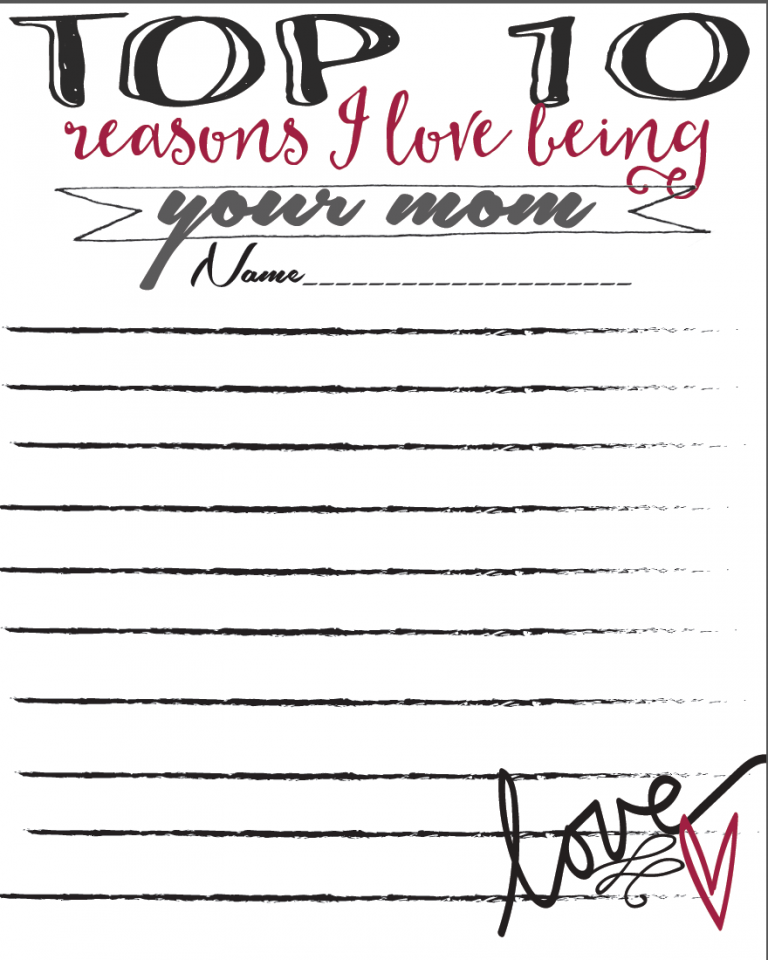 TOP 10
reasons I love being
your mom
Name____________________
love